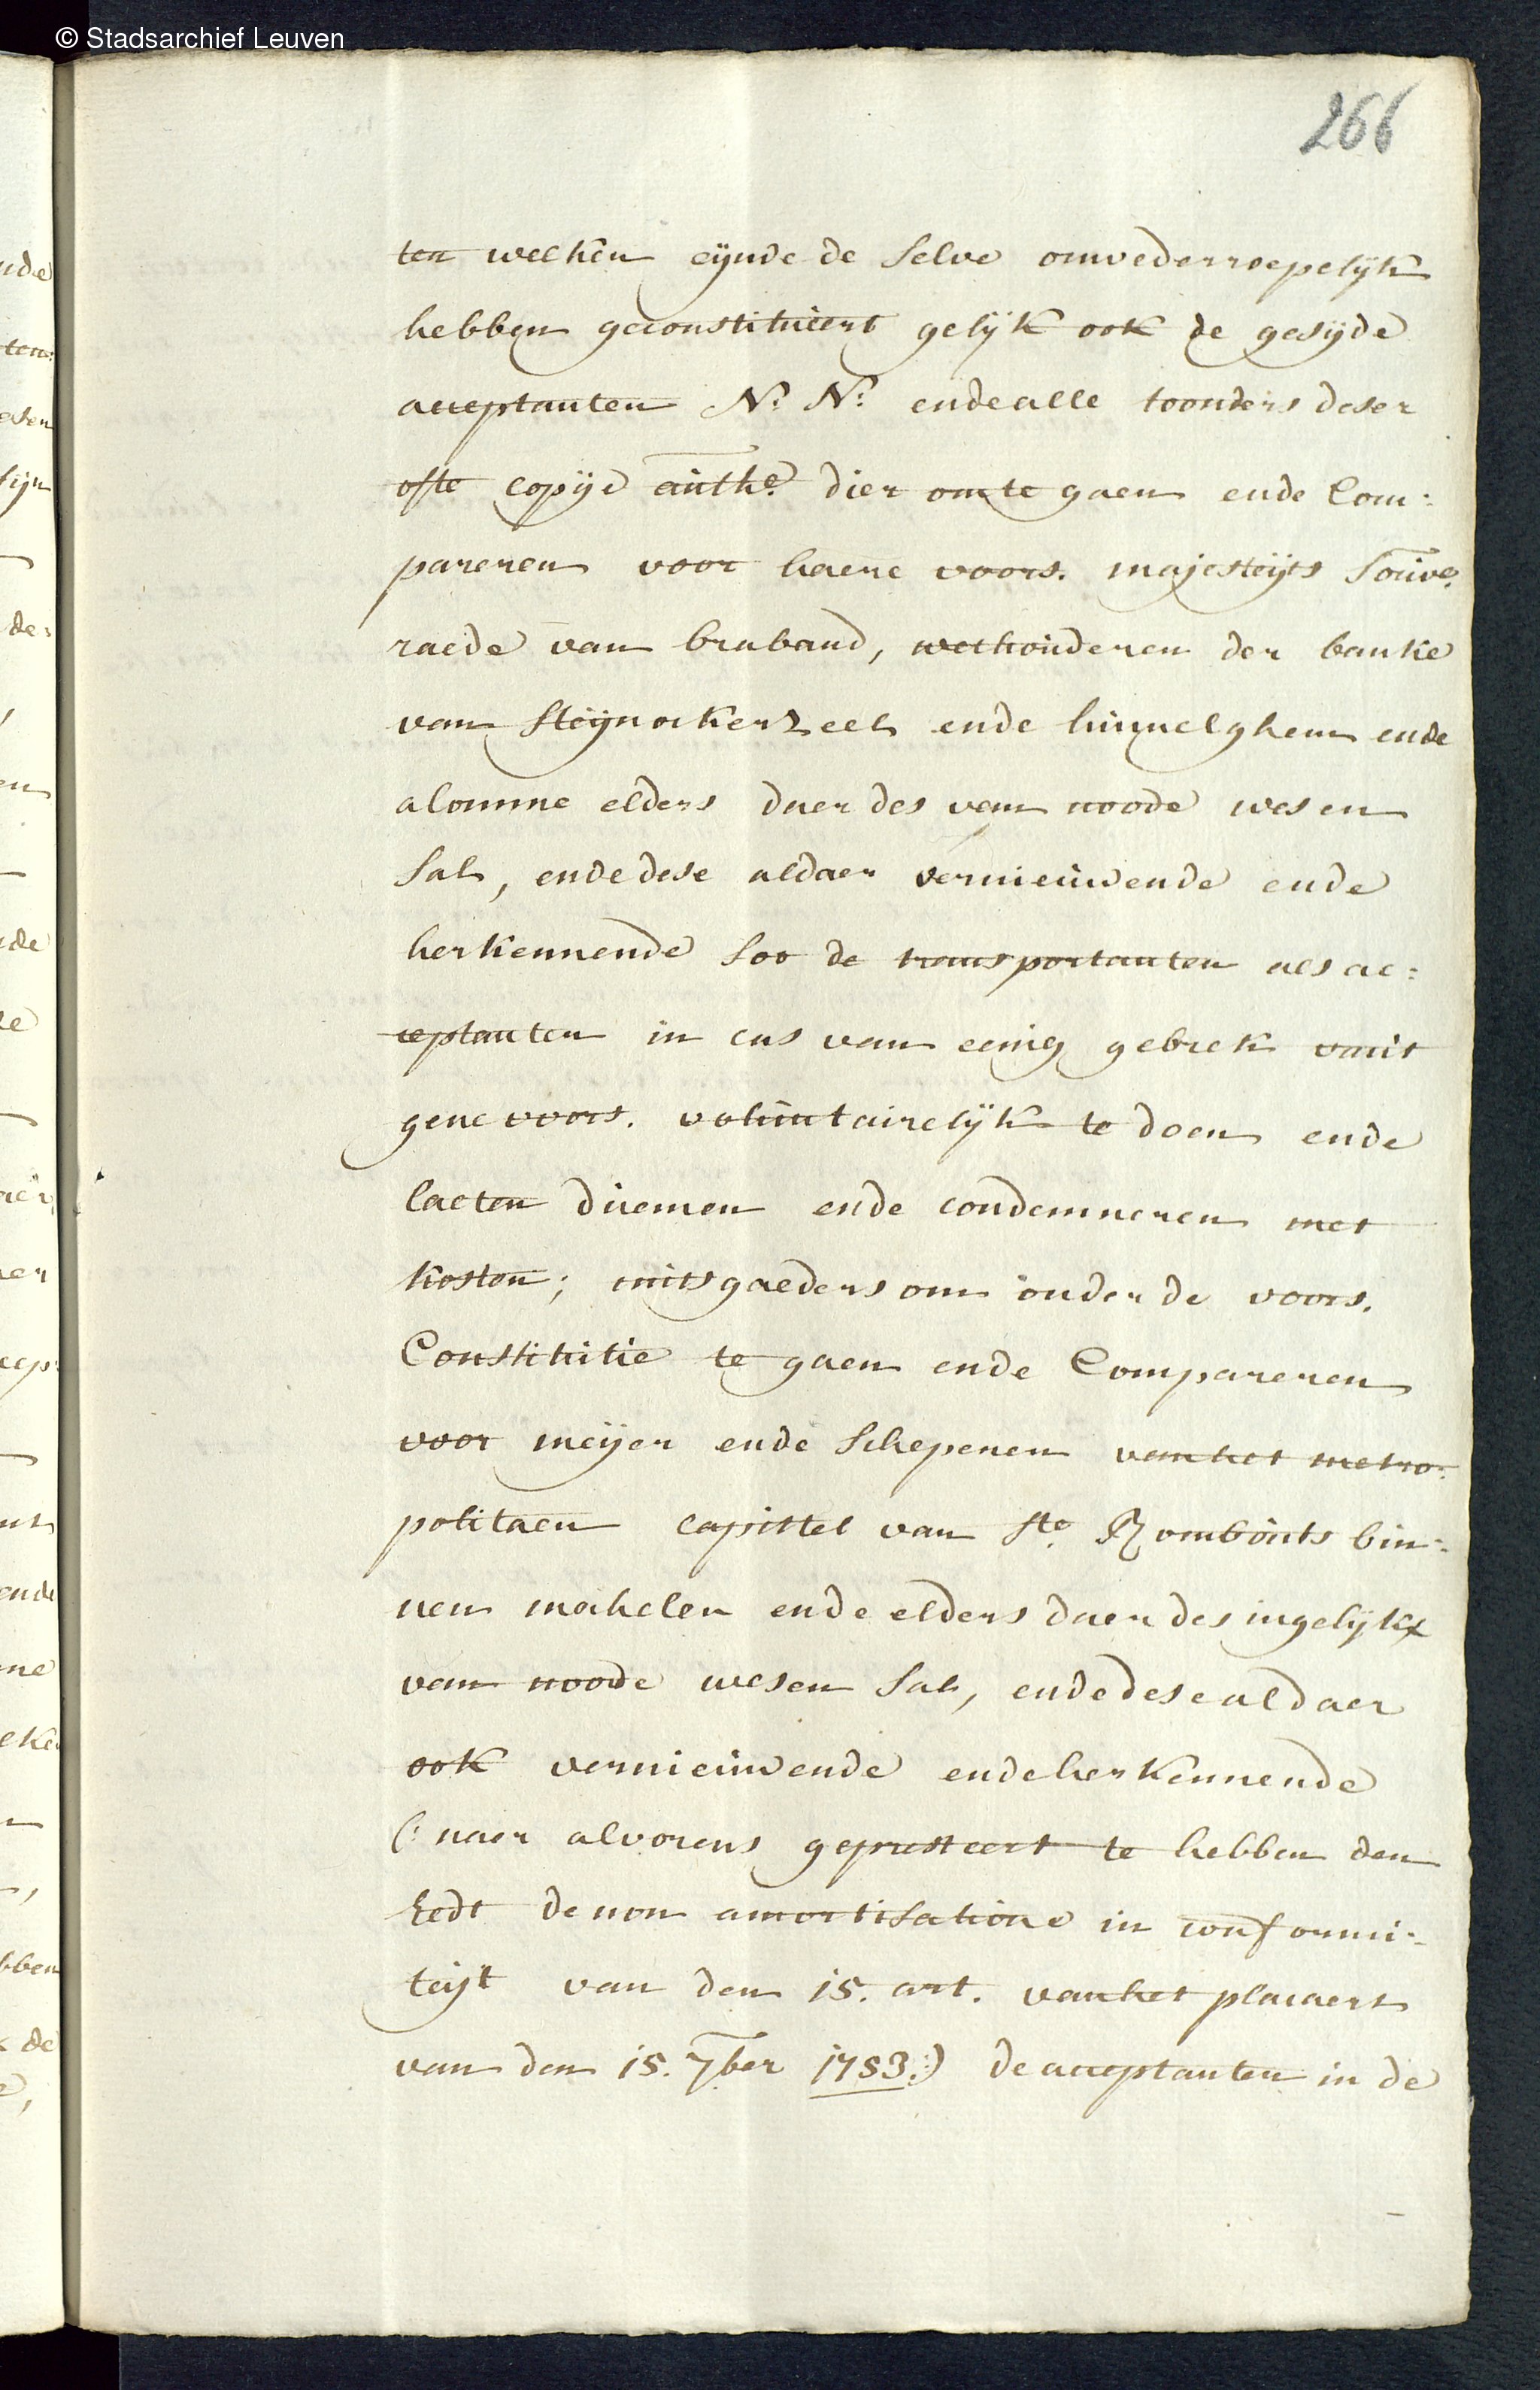 © Stadsarchief Leuven
266
ten welken eijnde de selve onwederroepelijk
hebben geconstitueert gelijk ook de gesijde
acceptanten N: N: ende alle toonders deser
ofte copije authe: dier om te gaen ende Com:
pareren voor haere voors. majesteijts souve:
raede van braband, wethouderen der banke
van steijnockerzeel ende humelghem ende
alomme elders daer des van noode wesen
sal, ende dese aldaer vernieuwende ende
herkennende soo de transportanten als ac:
ceptanten in cas van eenig gebrek van't
gene voors. voluntairelijk te doen ende
laeten doemen ende condemneren met
kosten; mitsgaeders om onder de voors.
Constitutie te gaen ende Compareren
voor meijer ende schepenen van het metro:
politaen capittel van Ste. Rombouts bin:
nen mechelen ende elders daer des ingelijkx
van noode wesen sal, ende dese aldaer
ook vernieuwende ende herkennende
(: naer alvorens gepresteert te hebben den
Eedt de non amortisatione in conformi:
teijt van den 15. art. van het placaert
van den 15. 7ber 1753:) de acceptanten in de